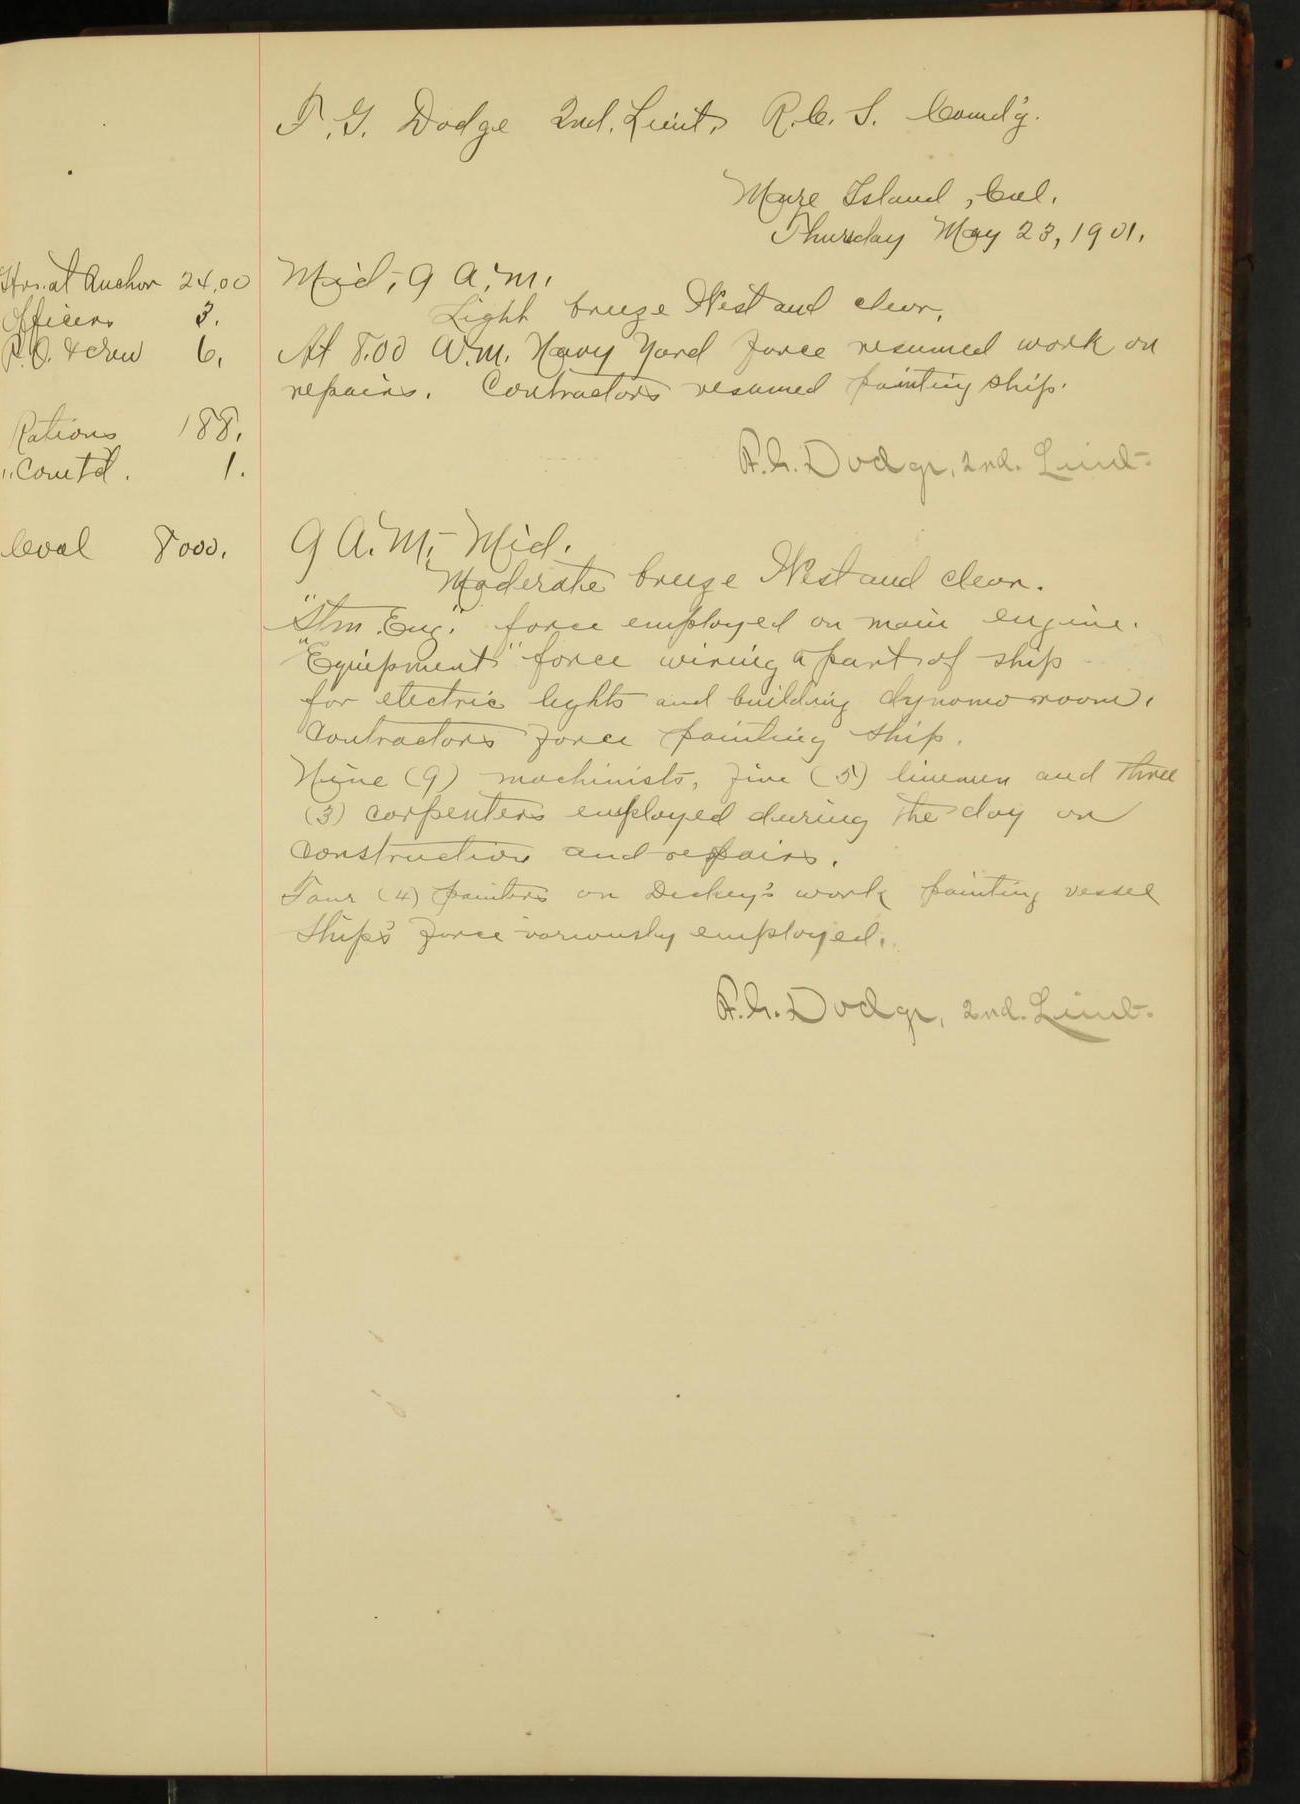 F. G. Dodge 2nd. Lieut. R.C.S. Comd'g.
Mare Island, Cal.
Thursday May 23, 1901.
Hrs. at Anchor 24.00
Officers 3.
P.O. & crew 6.
Rations 188.
" Comt'd. 1.
Coal 8000.
Mid,-9 A.M.
Light breeze West and clear.
At 8.00 A.M. Navy Yard force resumed work on
repairs. Contractors resumed painting ship.
F.G. Dodge, 2nd. Lieut.
9 A.M.- Mid.
Moderate breeze West and clear.
"Stm. Eng." force employed on main engine.
"Equipment" force wiring a part of ship
for electric lights and building dynamo room.
Contractors force painting ship.
Nine (9) machinists, five (5) linemen and three
(3) carpenters employed during the day on
construction and repairs.
Four (4) painters on Dickey's work painting vessel
Ship's force variously employed.
F.G. Dodge, 2nd. Lieut.